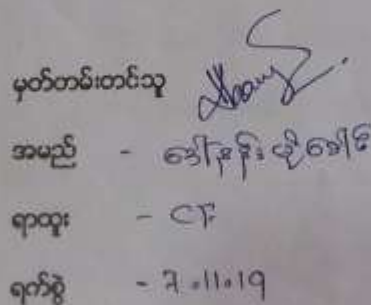 မှတ်တမ်းတင်သူ
အမည် - ဒေါ်နန်း
ရာထူး - CF
ရက်စွဲ - 7.11.19